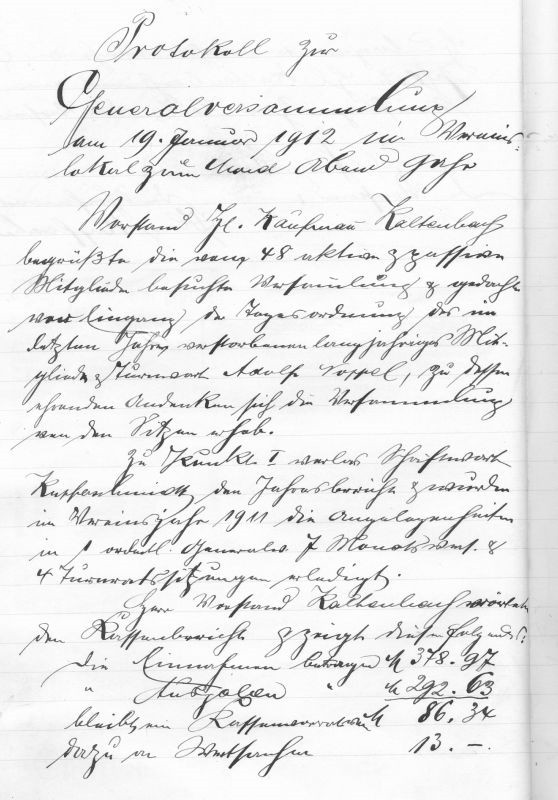 Protokoll zur
Generalversammlung
am 19. Januar 1912 im Vereins-
lokal zum Abend
Vorstand Hr. Kaufmann Kaltenbach
begrüßte die von 48 aktive & passive
Mitglieder besuchte Versammlung & gedachte
vor Eingang der Tagesordnung des im
letzten Jahre verstorbenen langjährigen Mit-
gliedes & Turnwart Adolf, zu dessen
ehrenden Andenken sich die Versammlung
von den Sitzen erhob.
Zu Punkt I verlas Schriftwart
den Jahresbericht & wurden
im Vereinsjahr 1911 die Angelegenheiten
in 1 ordentl. Generalv. 7 Monatsvers. &
4 Turnratssitzungen erledigt.
Herr Vorstand Kaltenbach
den Kassenbericht & zeigt dieser folgendes:
Die Einnahmen betragen M 378.97
" Ausgaben " M 292.63
bleibt ein Kassenvorrat M 86.34
dazu an Wertsachen 13.-